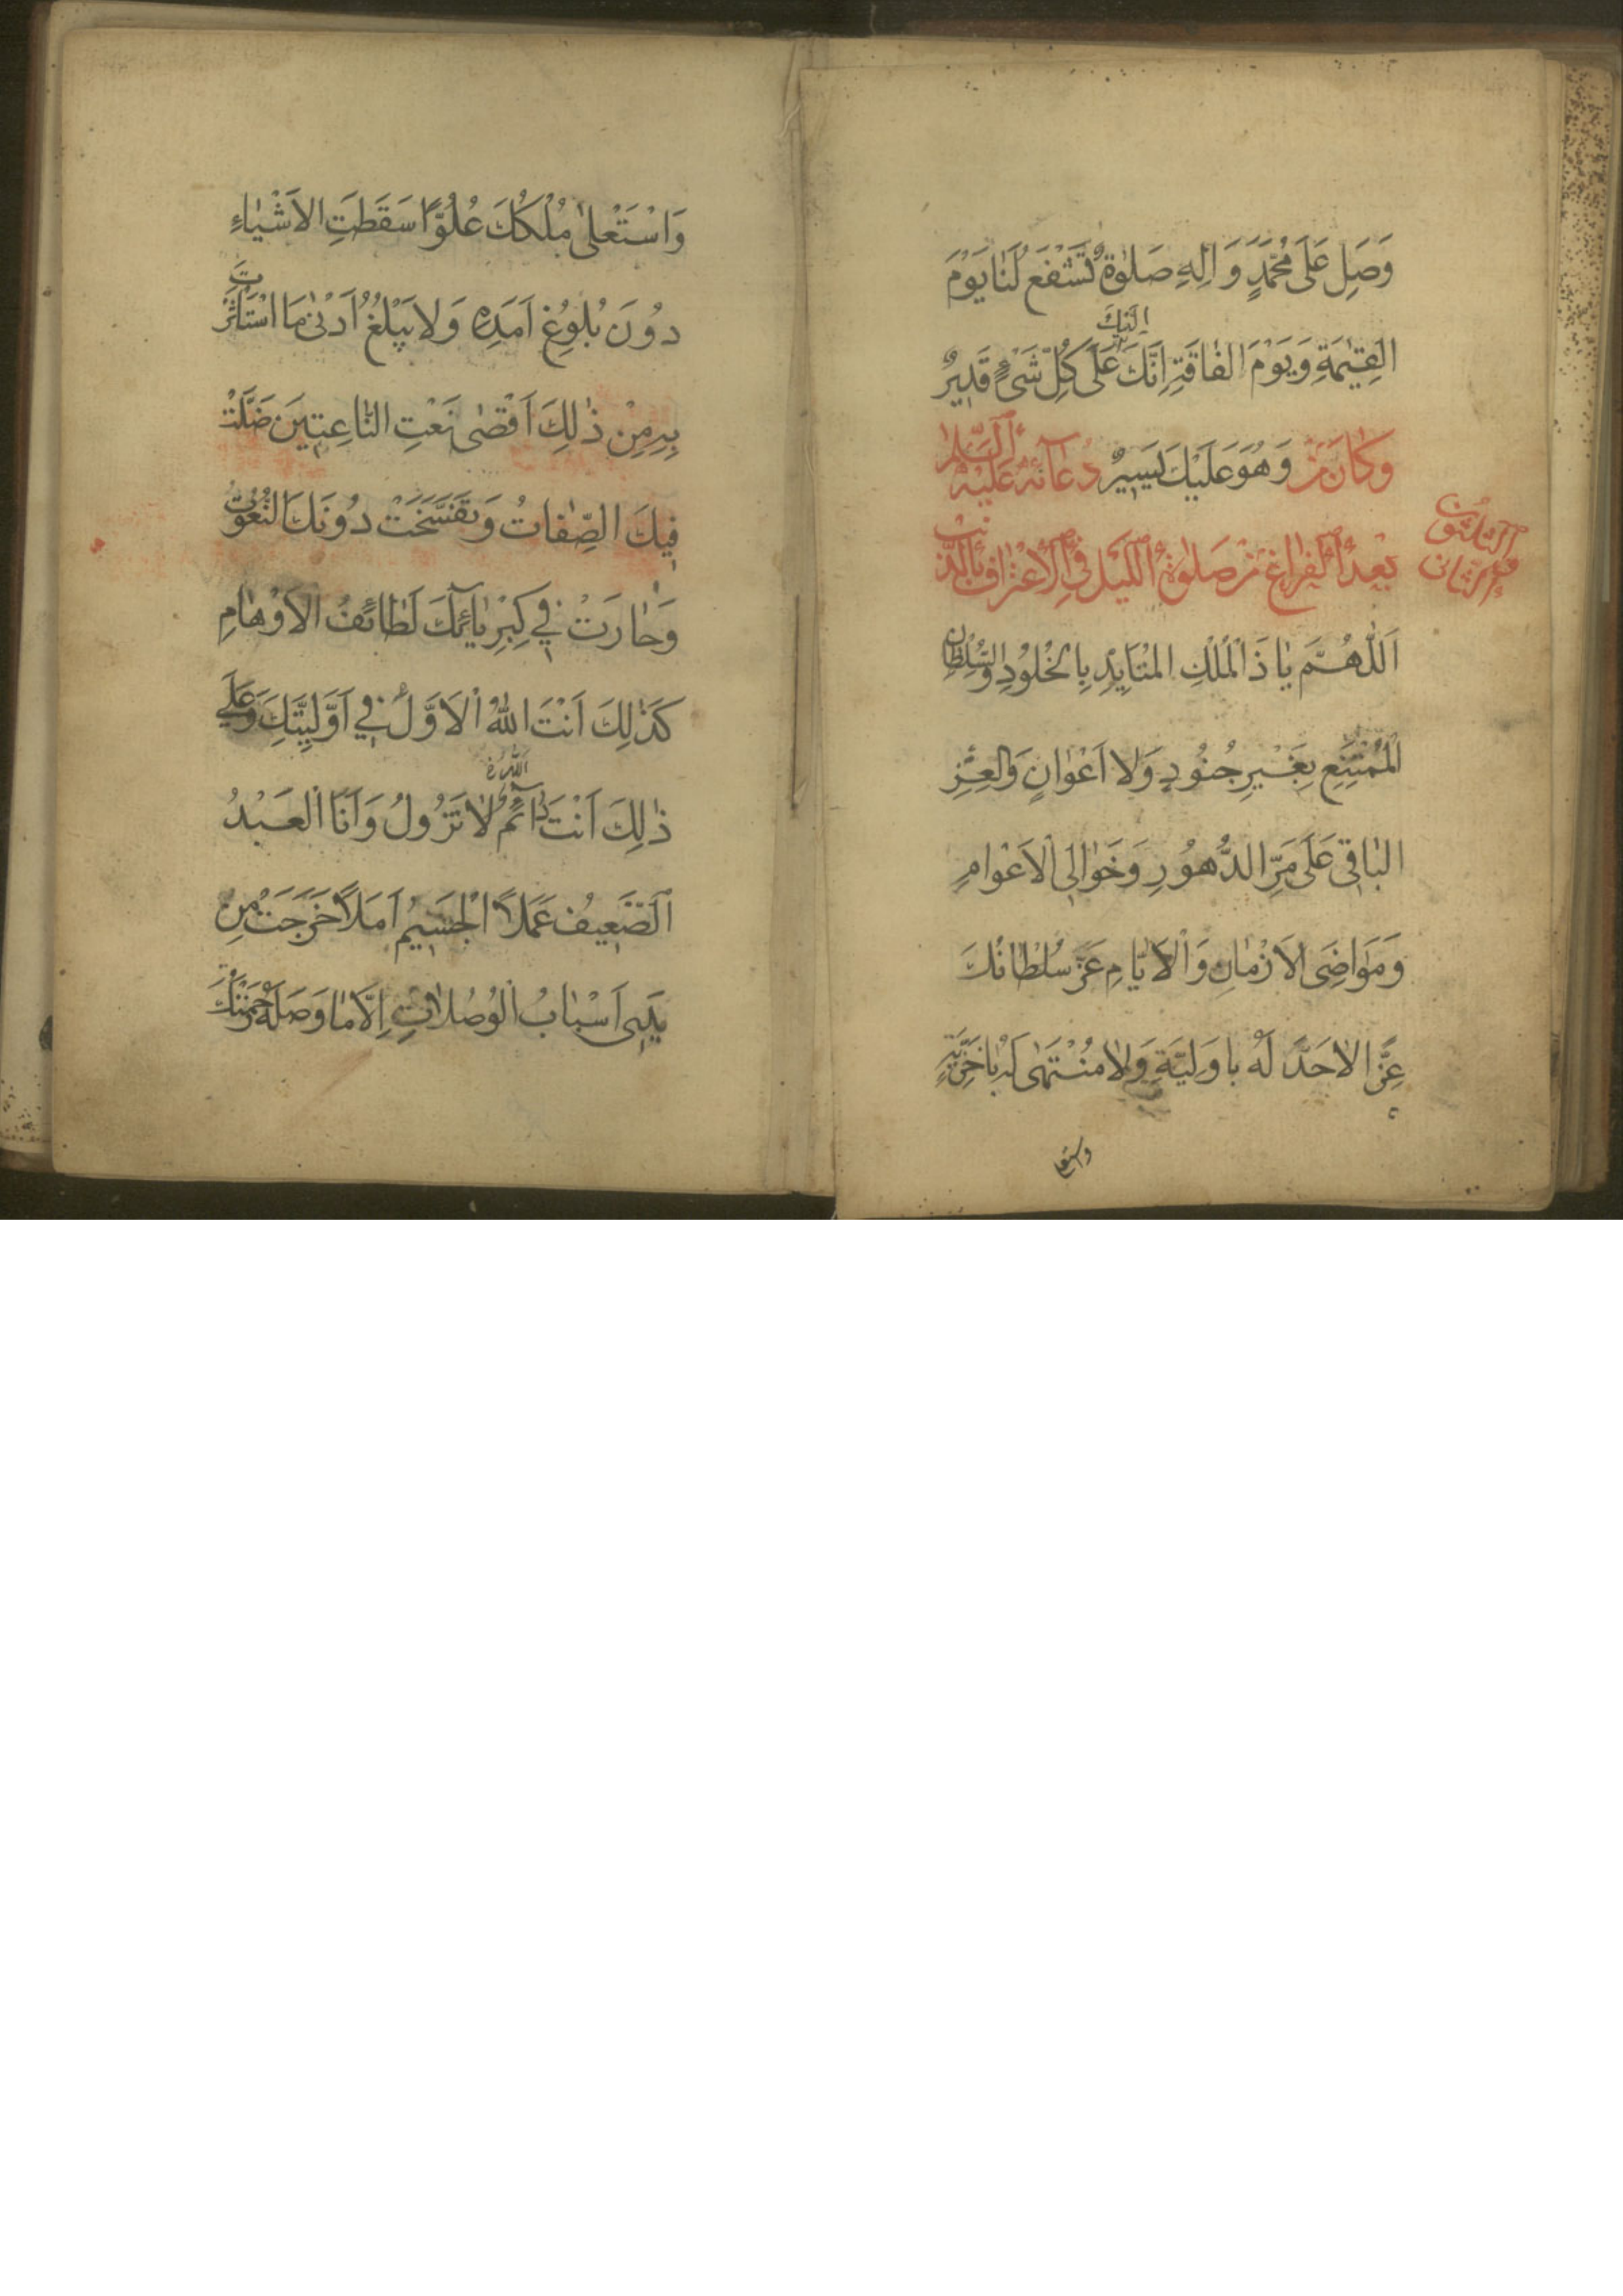 وَصَلِ عَلَى مُحَمَّدٍ وَ اٰلِهِ صَلٰوةً تَشْفَعُ لَنٰا يَوْمَ
اِلَيْكَ
القِيٰمَةِ وَ يَوْمَ الفٰاقَةِ اِنَّكَ عَلَى كُلِّ شَىْءٍ قَدِيرٌ
وَهُوَ عَلَيْكَ يَسِيرٌ
وَكٰانَ مِنْ دُعٰائِهِ عَلَيْهِ السَّلٰمُ
بَعْدَ الْفَرٰاغِ مِنْ صَلٰوةِ اللَّيْلِ فِي الْاِعْتِرٰافِ بِالذَّنْبِ
الثلثون
و الثان
اَللّٰهُمَّ يٰا ذَا الْمُلْكِ المُتَاَبِّدِ بِالْخُلُوْدِ وَالسُّلْطٰانِ
الْمُمْتَنِعِ بِغَيْرِ جُنُودٍ وَلا اَعْوٰانٍ وَالعِزِّ
البٰاقِى عَلَى مَرِّ الدُّهُورِ وَ خَوٰالِى الْاَعْوٰامِ
وَ مَوَاضِى الاَزْمٰانِ وَ الْاَيّٰامِ عَزَّ سُلْطٰانُكَ
عِزًّا لاٰحَدَّ لَهُ باَوَلِيَّةٍ وَلاٰ مُنْتَهٰى لَهُ بِاٰخِرِيَّةٍ
واستعلى
وَاسْتَعْلىٰ مُلْكُكَ عُلُوًّا سَقَطَتِ الاَشْيٰاءُ
دُونَ بُلُوغِ اَمَدِهِ وَلا يَبْلُغُ اَدْنىٰ مَا اسْتَاْثَرْتَ
بِهِ مِنْ ذٰلِكَ اَقْصٰى نَعْتِ النّٰاعِتِينَ ضَلَّتْ
فِيكَ الصِّفٰاتُ وَ تَفَسَّخَتْ دُونَكَ النُّعُوتُ
وَ حٰارَتْ فِي كِبْرِيٰائِكَ لَطٰائِفُ الاَوْهٰامِ
كَذٰلِكَ اَنْتَ اللّٰهُ الْاَوَّلُ فِي اَوَّلِيَّتِكَ وَعَلَى
الله
ذٰلِكَ اَنْتَ دٰائِمٌ لاٰ تَزُولُ وَ اَنَا العَبْدُ
اَلضَّعِيفُ عَمَلاً الْجَسِيمُ اَمَلاً خَرَجَتْ مِنْ
يَدِى اَسْبٰابُ الْوُصُلاٰتِ اِلّاٰ مٰا وَصَلَهُ رَحْمَتُكَ